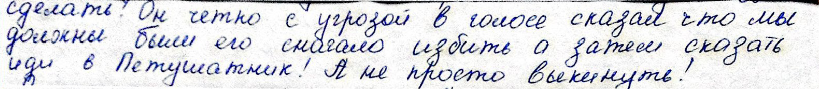 сделать! Он четко с угрозой в голосе сказал что мы
должны были его сначало избить а затем сказать
иди в Петушатник! А не просто выкинуть!